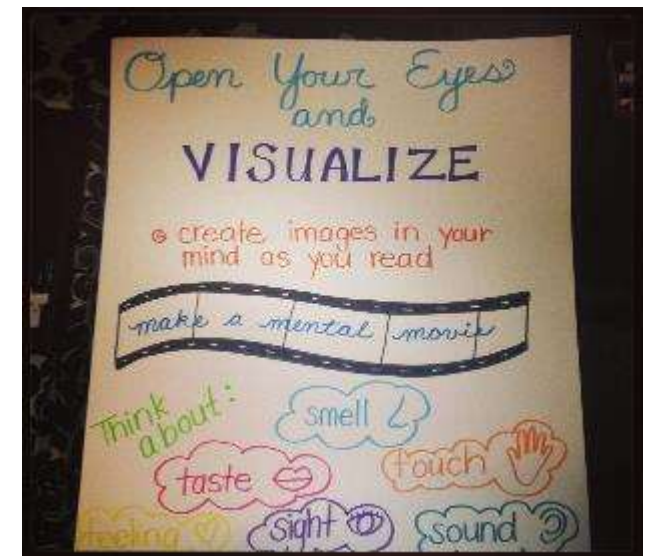 Open Your Eyes
and
VISUALIZE
create images in your
mind as you read
make a mental movie
Think
about:
smell
taste
touch
feeling
sight
sound